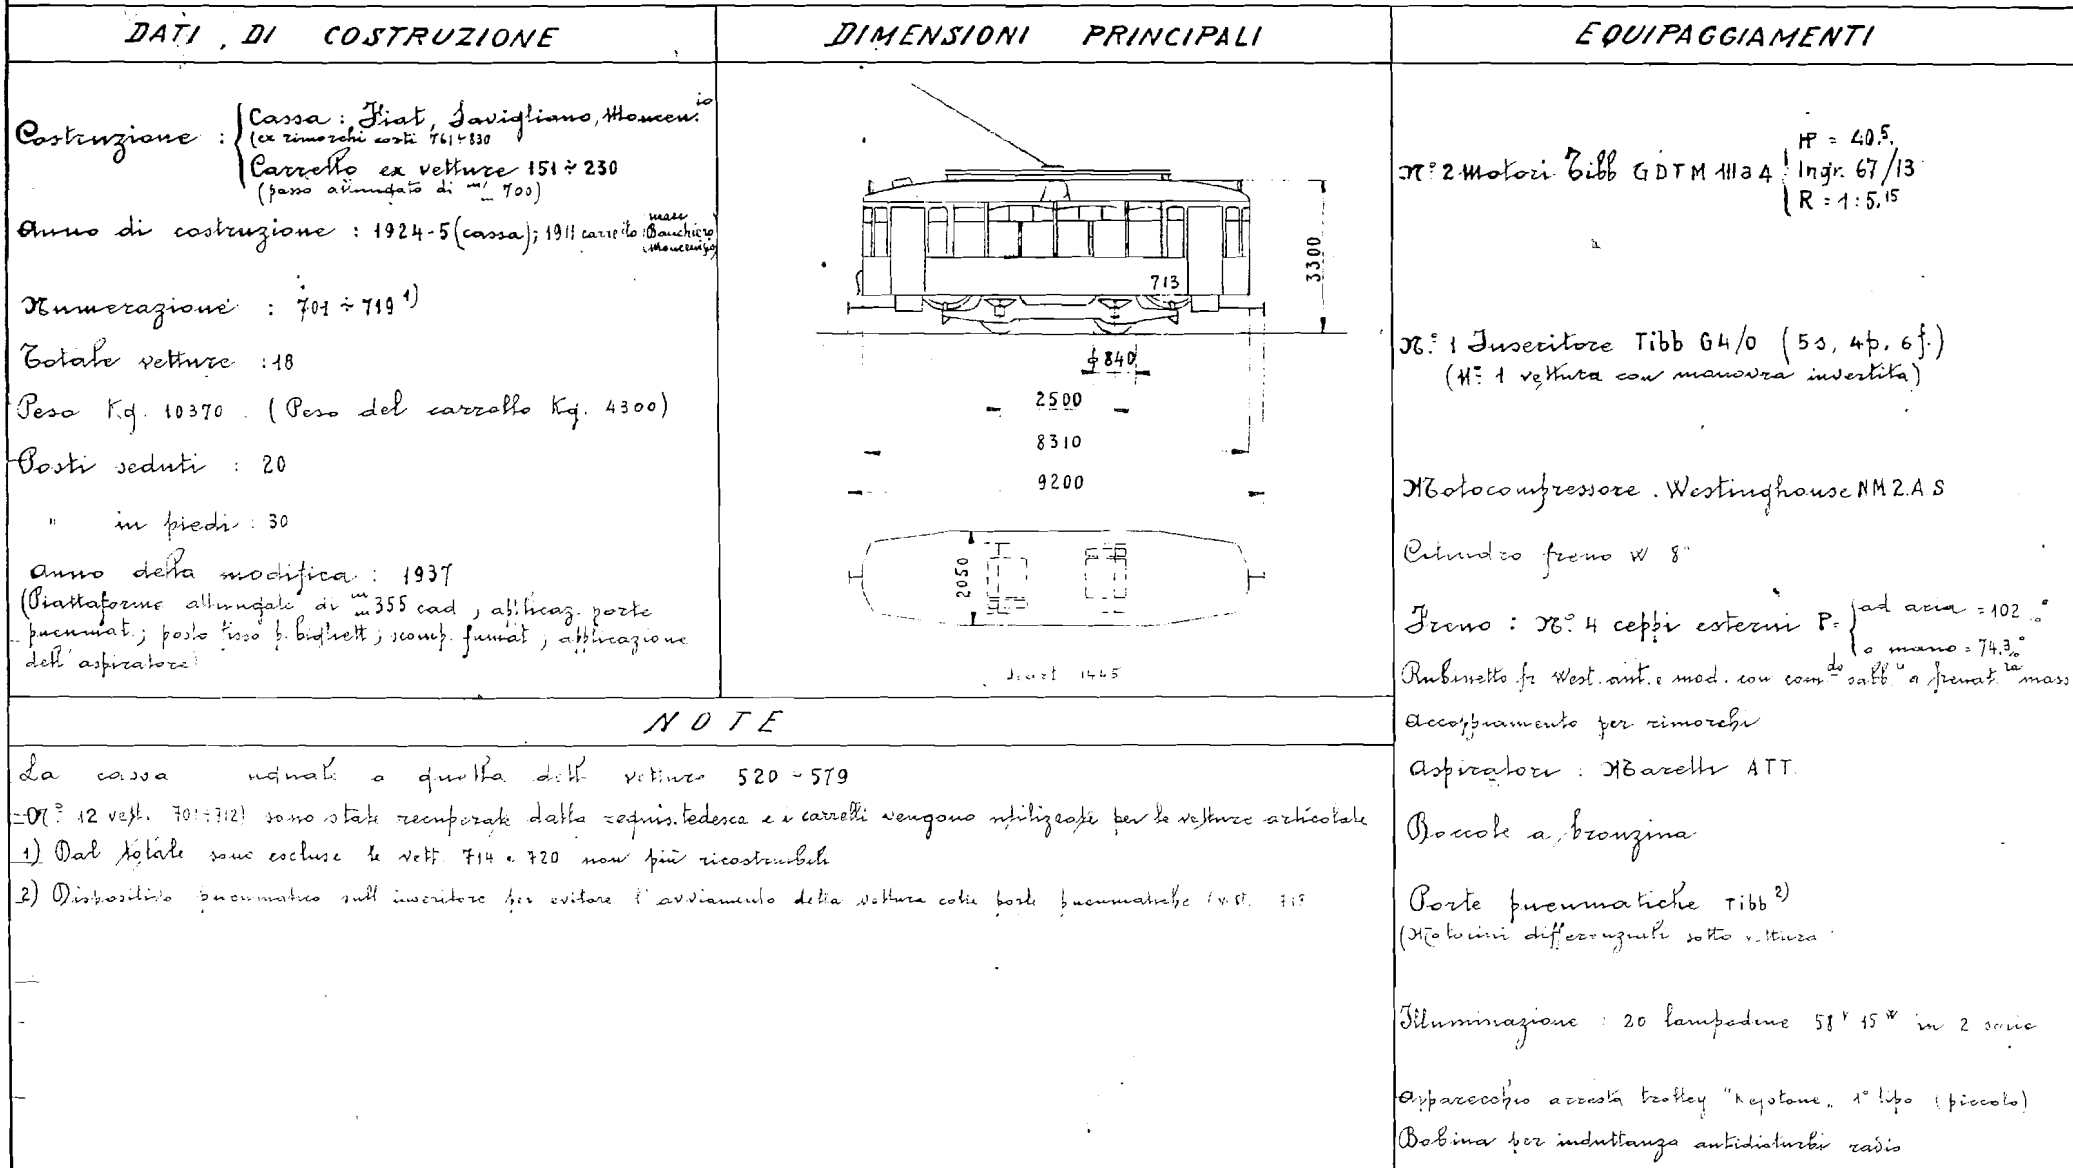 DATI DI COSTRUZIONE
Costruzione : Cassa : Fiat, Savigliano, Moncen.io
(ex rimorchi costi 761÷830
Carrello ex vetture 151÷230
(passo allungato di m/m 700)
Anno di costruzione : 1924-5 (cassa); 1911 carrello (Bauchiero
Moncenisio)
Numerazione : 701 ÷ 719 1)
Totale vetture : 18
Peso Kg. 10370. (Peso del carrello Kg. 4300)
Posti seduti : 20
" in piedi : 30
Anno della modifica : 1937
(Piattaforme allungate di m/m 355 cad, applicaz. porte
pneumat.; posto fisso p. bigliett; scomp. fumat; applicazione
dell'aspiratore)
DIMENSIONI PRINCIPALI
713
3300
ϕ 840
2500
8310
9200
2050
1445
EQUIPAGGIAMENTI
N° 2 Motori Tibb GDTM 111a4 HP = 40.5.
Ingr. 67/13
R = 1:5,15
N° 1 Inseritore Tibb G4/0 (5s, 4p, 6f.)
(N° 1 vettura con manovra invertita)
Motocompressore. Westinghouse NM2.A.S
Cilindro freno W 8"
Freno : N° 4 ceppi esterni P= ad aria = 102 %
a mano = 74.3%
Rubinetto fr West. aut. e mod. con com.do sabb.a a frenat.ra mass
Accoppiamento per rimorchi
Aspiratori : Marelli ATT.
Boccole a bronzina
Porte pneumatiche Tibb 2)
(Motorini differenziali sotto vettura
Illuminazione : 20 lampadine 58 V 15 W in 2 serie
Apparecchio arresta trolley "Keystone" 1° tipo (piccolo)
Bobina per induttanza antidisturbi radio
NOTE
La cassa uguale a quella dell vetture 520-579
-N° 12 vett. 701÷712) sono state recuperate dalla requis. tedesca e i carrelli vengono utilizzati per le vetture articolate
1) Dal totale sono escluse le vett. 714 e 720 non più ricostruibili
2) Dispositivo pneumatico sull'inseritore per evitare l'avviamento della vettura colle porte pneumatiche